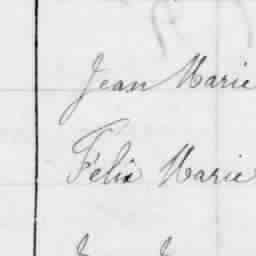 Jean Marie
Félix Marie